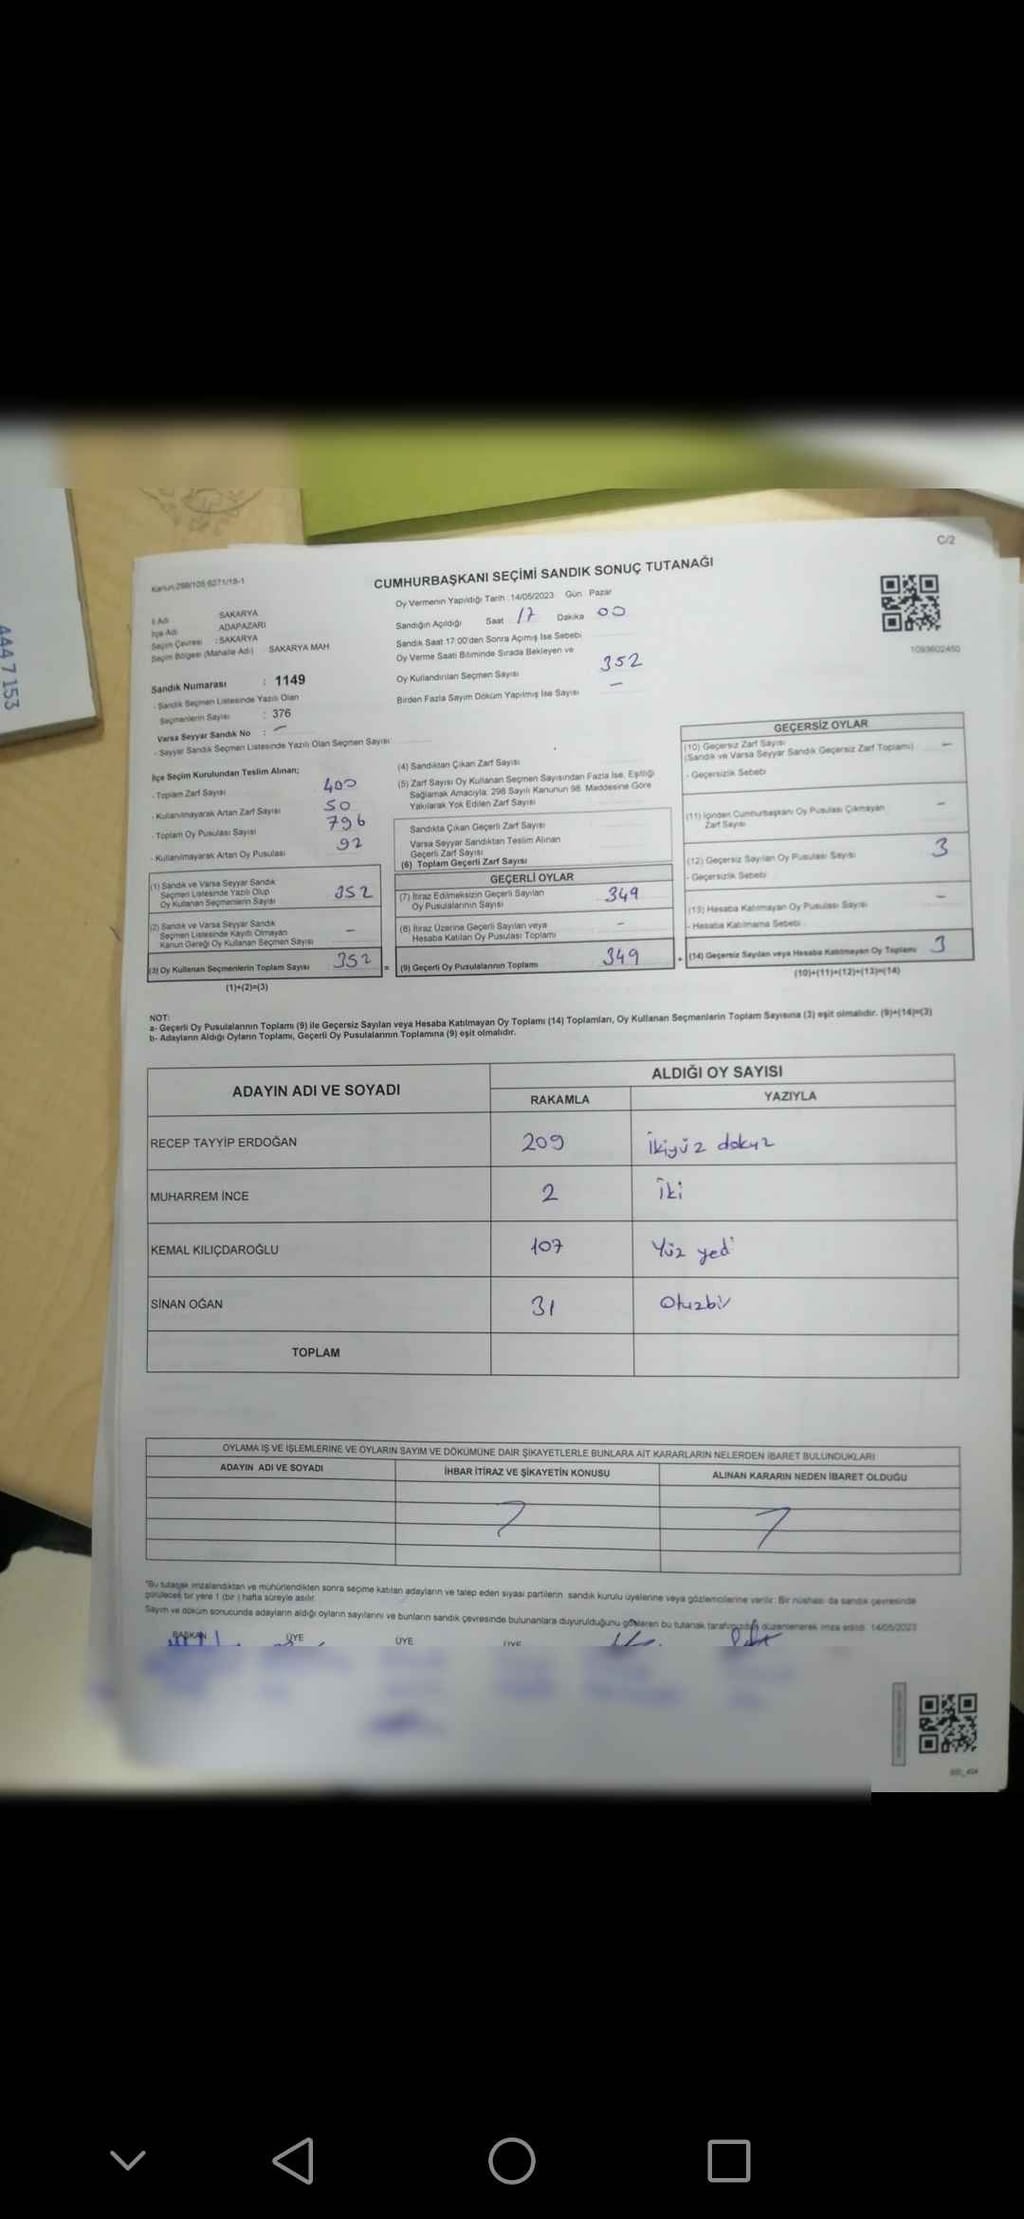 C/2
Kanun:298/105 6271/19-1
CUMHURBAŞKANI SEÇİMİ SANDIK SONUÇ TUTANAĞI
İl Adı SAKARYA
İlçe Adı ADAPAZARI
Seçim Çevresi : SAKARYA
Seçim Bölgesi (Mahalle Adı) SAKARYA MAH.
Sandık Numarası : 1149
- Sandık Seçmen Listesinde Yazılı Olan
Seçmenlerin Sayısı : 376
Varsa Seyyar Sandık No : –
- Seyyar Sandık Seçmen Listesinde Yazılı Olan Seçmen Sayısı
Oy Vermenin Yapıldığı Tarih :14/05/2023 Gün : Pazar
Sandığın Açıldığı Saat 17 Dakika 00
Sandık Saat 17:00'den Sonra Açımış İse Sebebi
Oy Verme Saati Bitiminde Sırada Bekleyen ve
Oy Kullandırılan Seçmen Sayısı 352
Birden Fazla Sayım Döküm Yapılmış İse Sayısı –
1093602450
444 7 153
İlçe Seçim Kurulundan Teslim Alınan;
- Toplam Zarf Sayısı 400
- Kullanılmayarak Artan Zarf Sayısı 50
- Toplam Oy Pusulası Sayısı 796
- Kullanılmayarak Artan Oy Pusulası 92
(1) Sandık ve Varsa Seyyar Sandık
Seçmen Listesinde Yazılı Olup
Oy Kullanan Seçmenlerin Sayısı 352
(2) Sandık ve Varsa Seyyar Sandık
Seçmen Listesinde Kayıtlı Olmayan
Kanun Gereği Oy Kullanan Seçmen Sayısı –
(3) Oy Kullanan Seçmenlerin Toplam Sayısı 352
(1)+(2)=(3)
(4) Sandıktan Çıkan Zarf Sayısı
(5) Zarf Sayısı Oy Kullanan Seçmen Sayısından Fazla İse, Eşitliği
Sağlamak Amacıyla; 298 Sayılı Kanunun 98. Maddesine Göre
Yakılarak Yok Edilen Zarf Sayısı
Sandıkta Çıkan Geçerli Zarf Sayısı
Varsa Seyyar Sandıktan Teslim Alınan
Geçerli Zarf Sayısı
(6) Toplam Geçerli Zarf Sayısı
GEÇERLİ OYLAR
(7) İtiraz Edilmeksizin Geçerli Sayılan
Oy Pusulalarının Sayısı 349
(8) İtiraz Üzerine Geçerli Sayılan veya
Hesaba Katılan Oy Pusulası Toplamı –
= (9) Geçerli Oy Pusulalarının Toplamı 349
GEÇERSİZ OYLAR
(10) Geçersiz Zarf Sayısı –
(Sandık ve Varsa Seyyar Sandık Geçersiz Zarf Toplamı)
- Geçersizlik Sebebi
(11) İçinden Cumhurbaşkanı Oy Pusulası Çıkmayan
Zarf Sayısı –
(12) Geçersiz Sayılan Oy Pusulası Sayısı 3
- Geçersizlik Sebebi
(13) Hesaba Katılmayan Oy Pusulası Sayısı –
- Hesaba Katılmama Sebebi
+ (14) Geçersiz Sayılan veya Hesaba Katılmayan Oy Toplamı 3
(10)+(11)+(12)+(13)=(14)
NOT:
a- Geçerli Oy Pusulalarının Toplamı (9) ile Geçersiz Sayılan veya Hesaba Katılmayan Oy Toplamı (14) Toplamları, Oy Kullanan Seçmenlerin Toplam Sayısına (3) eşit olmalıdır. (9)+(14)=(3)
b- Adayların Aldığı Oyların Toplamı, Geçerli Oy Pusulalarının Toplamına (9) eşit olmalıdır.
ADAYIN ADI VE SOYADI ALDIĞI OY SAYISI
RAKAMLA YAZIYLA
RECEP TAYYİP ERDOĞAN 209 İkiyüz dokuz
MUHARREM İNCE 2 İki
KEMAL KILIÇDAROĞLU 107 Yüz yedi
SİNAN OĞAN 31 Otuzbir
TOPLAM
OYLAMA İŞ VE İŞLEMLERİNE VE OYLARIN SAYIM VE DÖKÜMÜNE DAİR ŞİKAYETLERLE BUNLARA AİT KARARLARIN NELERDEN İBARET BULUNDUKLARI
ADAYIN ADI VE SOYADI İHBAR İTİRAZ VE ŞİKAYETİN KONUSU ALINAN KARARIN NEDEN İBARET OLDUĞU
"Bu tutanak imzalandıktan ve mühürlendikten sonra seçime katılan adayların ve talep eden siyasi partilerin sandık kurulu üyelerine veya gözlemcilerine verilir. Bir nüshası da sandık çevresinde
görülecek bir yere 1 (bir ) hafta süreyle asılır.
Sayım ve döküm sonucunda adayların aldığı oyların sayılarını ve bunların sandık çevresinde bulunanlara duyurulduğunu gösteren bu tutanak tarafımızdan düzenlenerek imza edildi. 14/05/2023
BAŞKAN ÜYE ÜYE ÜYE